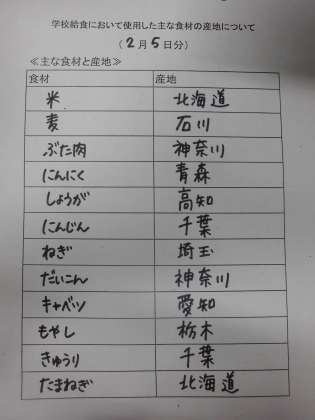 学校給食において使用した主な食材の産地について
(2月5日分)
≪主な食材と産地≫
食材 産地
米 北海道
麦 石川
ぶた肉 神奈川
にんにく 青森
しょうが 高知
にんじん 千葉
ねぎ 埼玉
だいこん 神奈川
キャベツ 愛知
もやし 栃木
きゅうり 千葉
たまねぎ 北海道